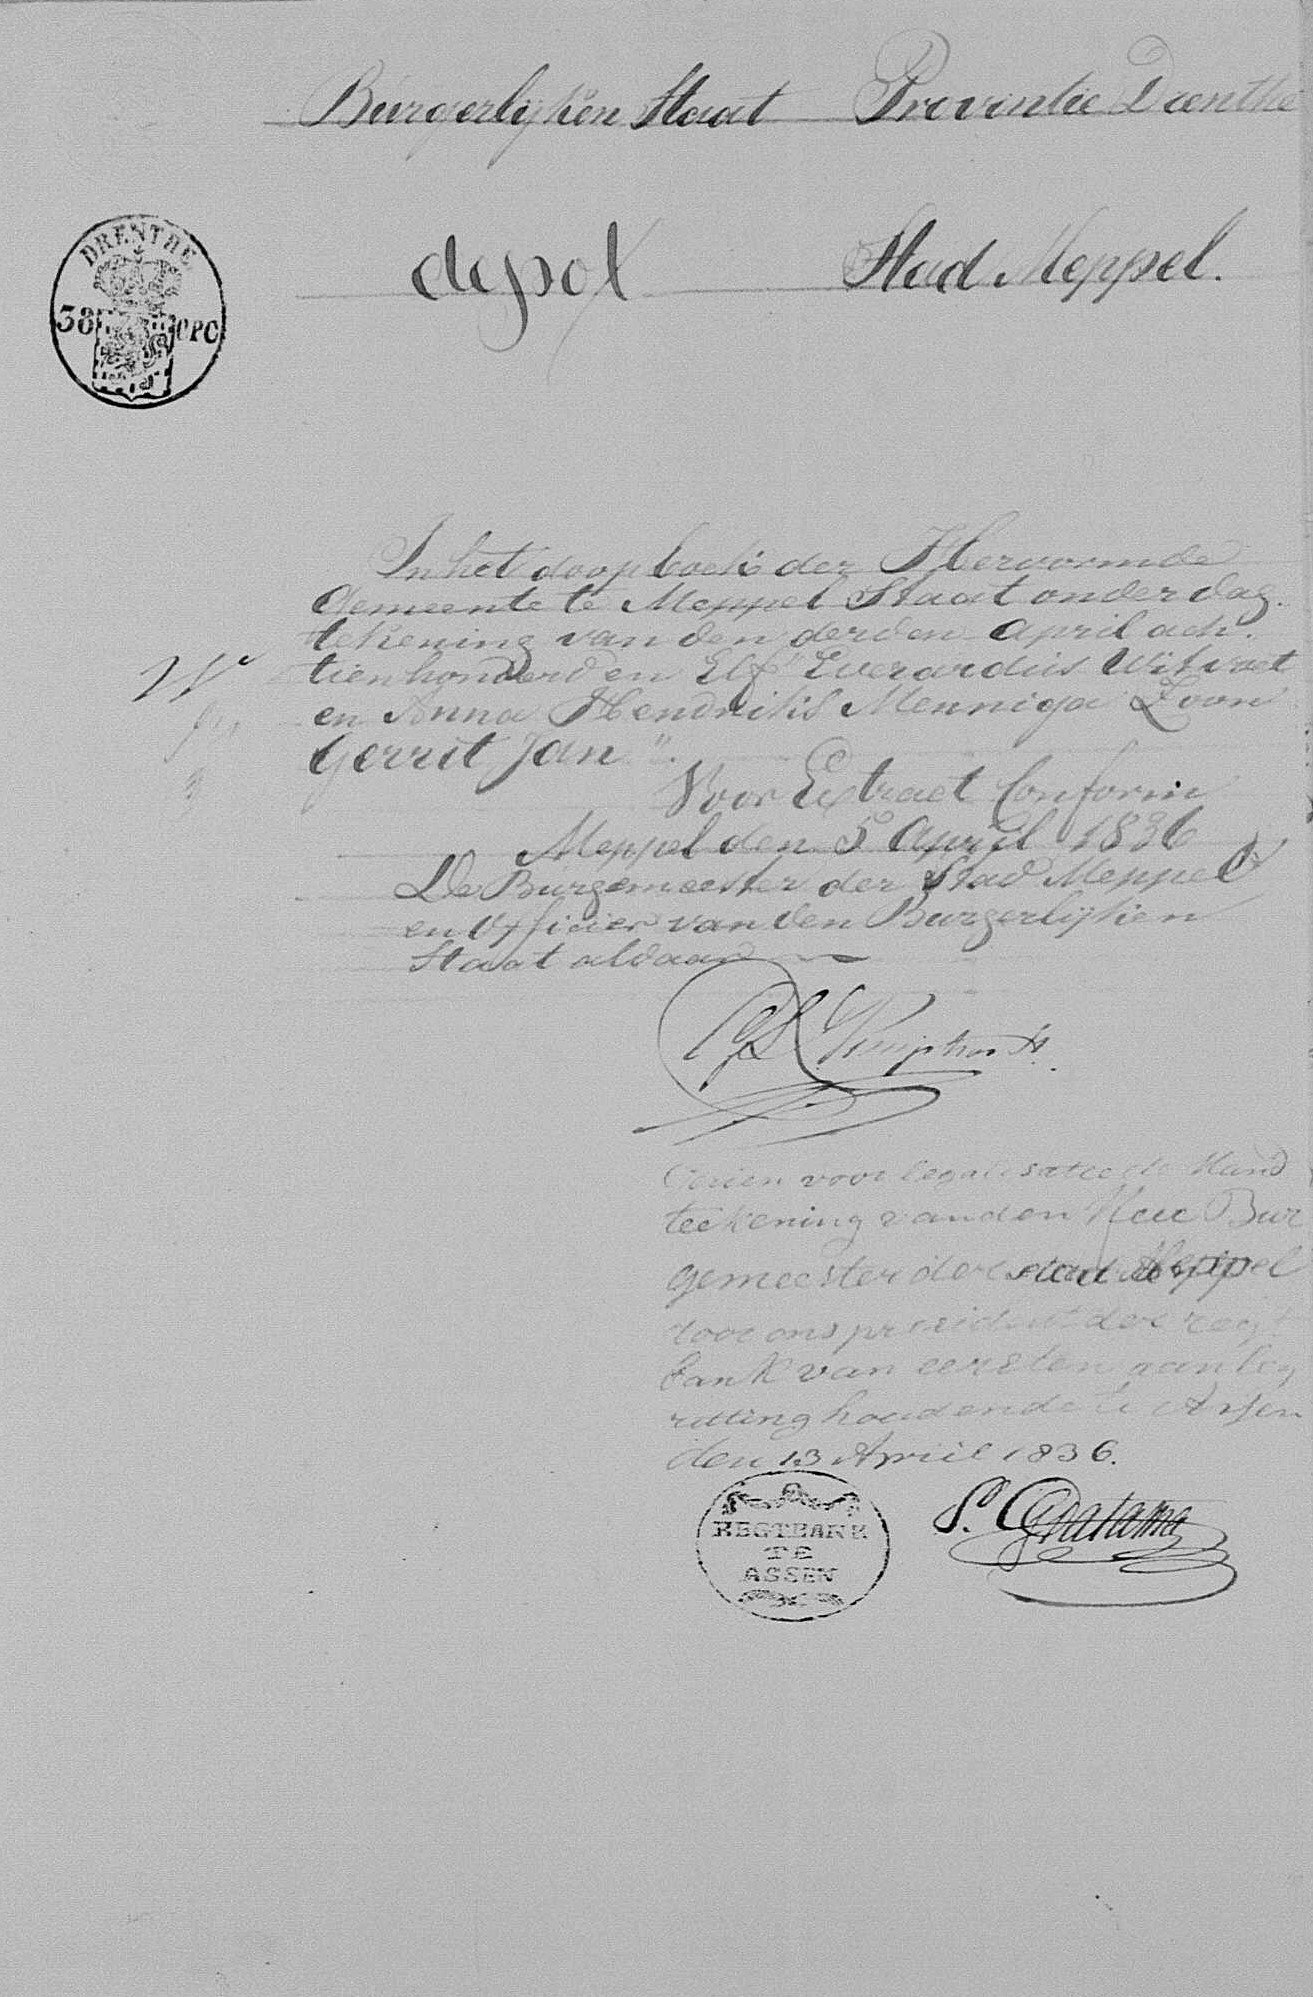 Burgerlyken Staat Provintie Drenthe
DRENTHE
38 OPC
depot Stad Meppel.
In het doopboek der Hervormde
Gemeente te Meppel Staat onder dag.
tekening van den derden April ach.
tienhonderd en Elf "Everardus Witvoet
en Anna Hendriks Menniga Zoon
Gerrit Jan".
Voor Extract Conform
Meppel den 5 April 1836
De Burgemeester der Stad Meppel
en Officier van den Burgerlijken
Staat aldaar
Gezien voor legalisatie de Hand
teekening van den Heer Bur
gemeester der stad Meppel
door ons president der regt
bank van eersten aanleg
zitting houdende te Assen
den 13 April 1836.
REGTBANK
TE
ASSEN
S. Gratama